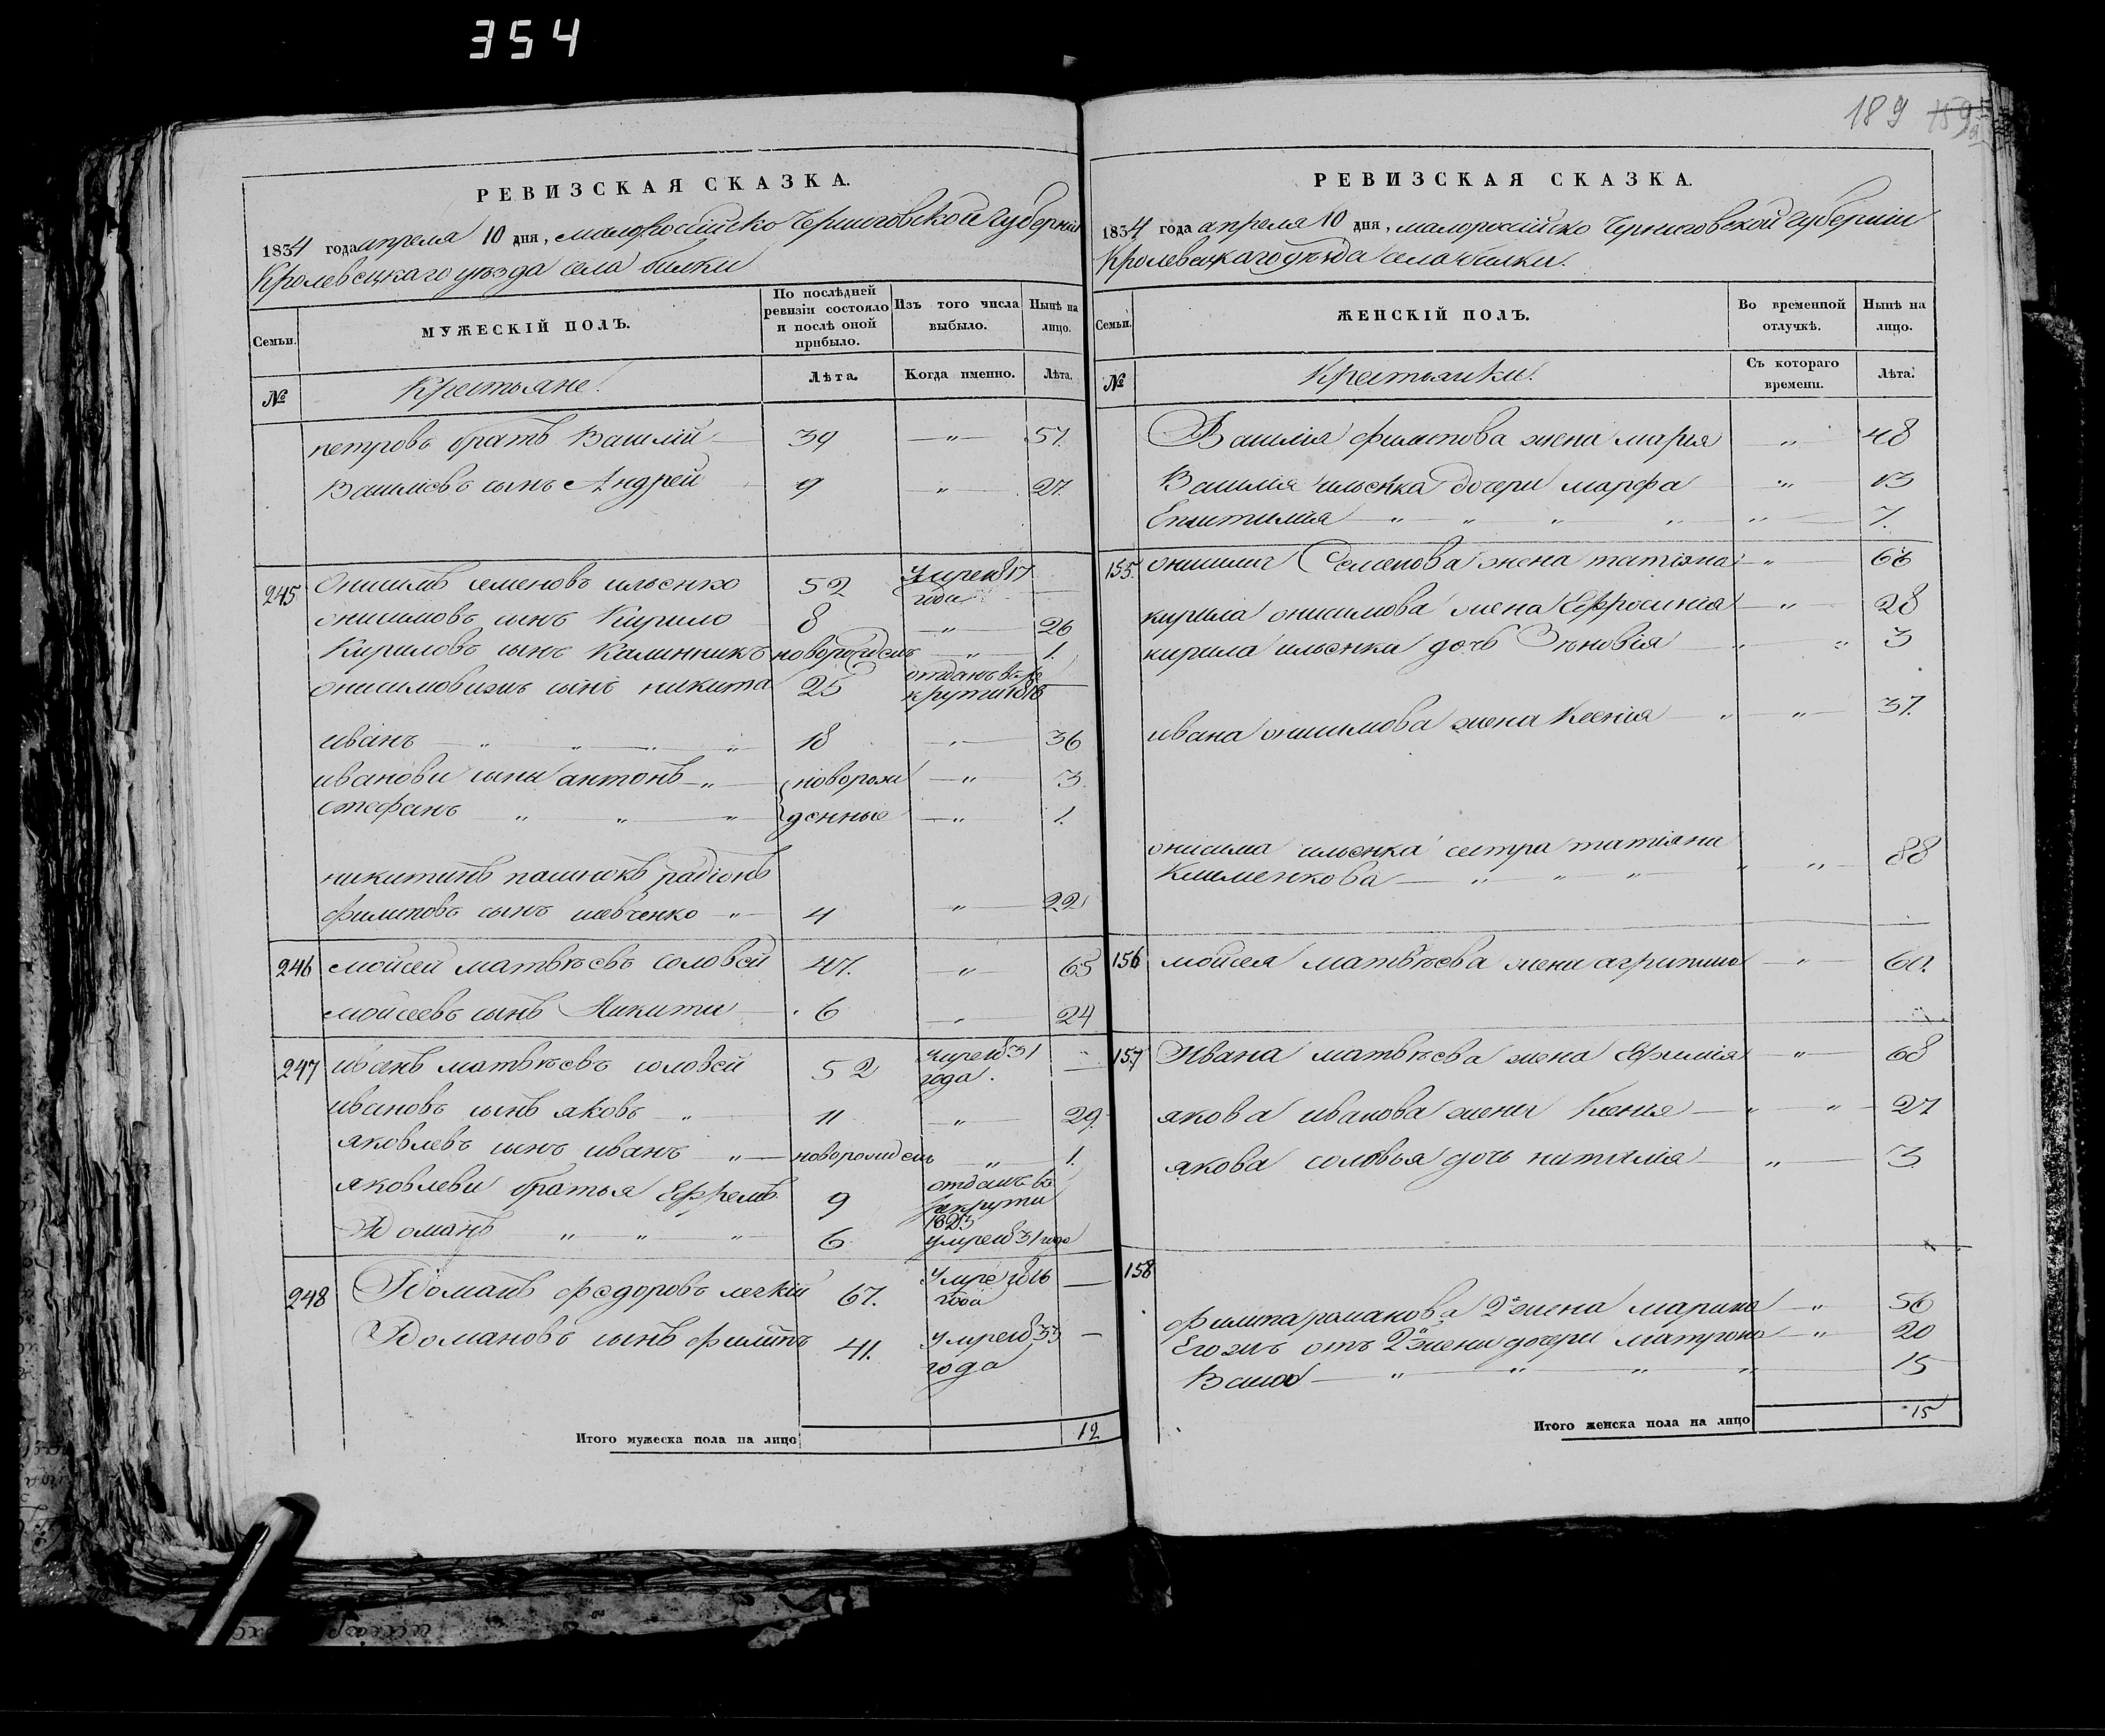 354
РЕВИЗСКАЯ СКАЗКА.
1834 года апреля 10 дня, малороссійско Черниговской губерніи
Кролевецкаго уѣзда села билки
Семьи.
МУЖЕСКІЙ ПОЛЪ.
По послѣдней ревизіи состояло и послѣ оной прибыло.
Изъ того числа выбыло.
Нынѣ на лицо.
№
Крестьяне.
Лѣта.
Когда именно.
Лѣта.
петровъ братъ Василій 39 — " — 57.
Василіевъ сынъ Андрей 9 " 27.
245 Онисимъ семеновъ ильенко 52 Умре 817 года —
онисимовъ сынъ Кирило 8 — " — 26
Кириловъ сынъ Калинникъ новорожденъ — " — 1.
онисимовъ же сынъ никита 25 отданъ в рекрути 1818 —
иванъ — " " " " 18 — " — 36
иванови сыни антонъ — " — новорож — " — 3.
стефанъ — " " " денные — " 1.
никитинъ пасинокъ радіонъ
филиповъ сынъ шевченко — " — 4 — " — 22
246 мойсей матвѣевъ соловей 47. — " 65
мойсеевъ сынъ Никити 6 — " 24
247 иванъ матвѣевъ соловей 52 умре 831 года. —
ивановъ сынъ яковъ — " — 11 — " — 29.
яковлевъ сынъ иванъ " — новорожденъ " 1.
яковлеви братья Ефремъ 9 отданъ во рекрути 1823
Романъ " " " 6. умре 831 года
248 Романъ федоровъ легкій 67. Умре 1816 года —
Романовъ сынъ филипъ 41. умре 833 года —
Итого мужеска пола на лицо 12
189 159
РЕВИЗСКАЯ СКАЗКА.
1834 года апреля 10 дня, малороссійско Черниговской губерніи
Кролевецкаго уѣзда села билки.
Семьи.
ЖЕНСКІЙ ПОЛЪ.
Во временной отлучкѣ.
Нынѣ на лицо.
№
Крестьянки.
Съ котораго времени.
Лѣта.
Василія филипова жена марія " 48
Василія ильенка дочери марфа — " 13
Епитимія — " " " " " 7.
155. онисима Семенова жена татіяна — " 66
кирила онисимова жена Ефросинія — " — 28
кирила ильенка дочь Зѣновія — " " 3
ивана онисимова жена Ксенія — " " — 37.
онисима ильенка сестра татіяна
Клименкова — " " " " " 88
156 мойсея матвѣева жена агрипина — " — 60.
157 Ивана матвѣева жена Ефимія " 68
якова иванова жена Ксенія — " " — 27
якова соловья дочь 3
158
филипа романова 2я жена марина — " 56
Его же отъ 2й жени дочери матрона — " 20
" " " " 15
Итого женска пола на лицо 15